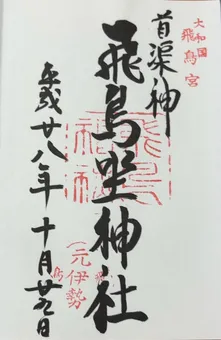 大和国
飛鳥宮
首渠神
飛鳥坐神社
元伊勢
平成廿八年十月廿九日